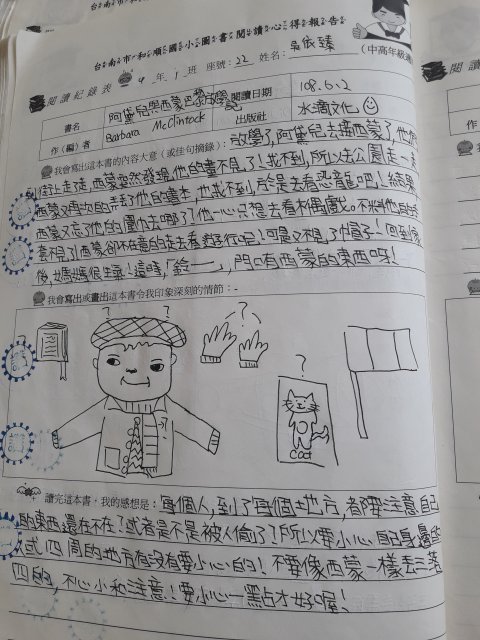 台南市和順國小圖書閱讀心得報告
台南市和順國小圖書閱讀心得報告
(中高年級適
閱讀紀錄表
4年1班 座號:22 姓名:吳依臻
書名
阿黛兒與西蒙巴黎放學記
閱讀日期
108.6.2
作(編)者
Barbara McClintock
出版社
水滴文化
我會寫出這本書的內容大意(或佳句摘錄):放學了,阿黛兒去接西蒙了,他們
街上走走,西蒙突然發現,他的畫不見了!找不到,所以去公園走一走
西蒙又再次的丟了他的書本,也找不到,於是去看恐龍吧!結果
西蒙又忘了他的圍巾去哪了!他一心只想去看木偶戲。不料他的手
套不見了,西蒙卻不在意的走去看遊行吧!可是又不見了帽子!回到家
後,媽媽很生氣!這時,「鈴——」,門口有西蒙的東西呀!
我會寫出或畫出這本書令我印象深刻的情節:
?
?
?
?
cat
讀完這本書,我的感想是:每個人,到了每個地方,都要注意自己
的東西還在不在?或者是不是被人偷了?所以要小心自己身邊的
人或四周的地方有沒有要小心的!不要像西蒙一樣丟三落
四的,不小心和注意!要小心一點才好喔!
閱讀
作(